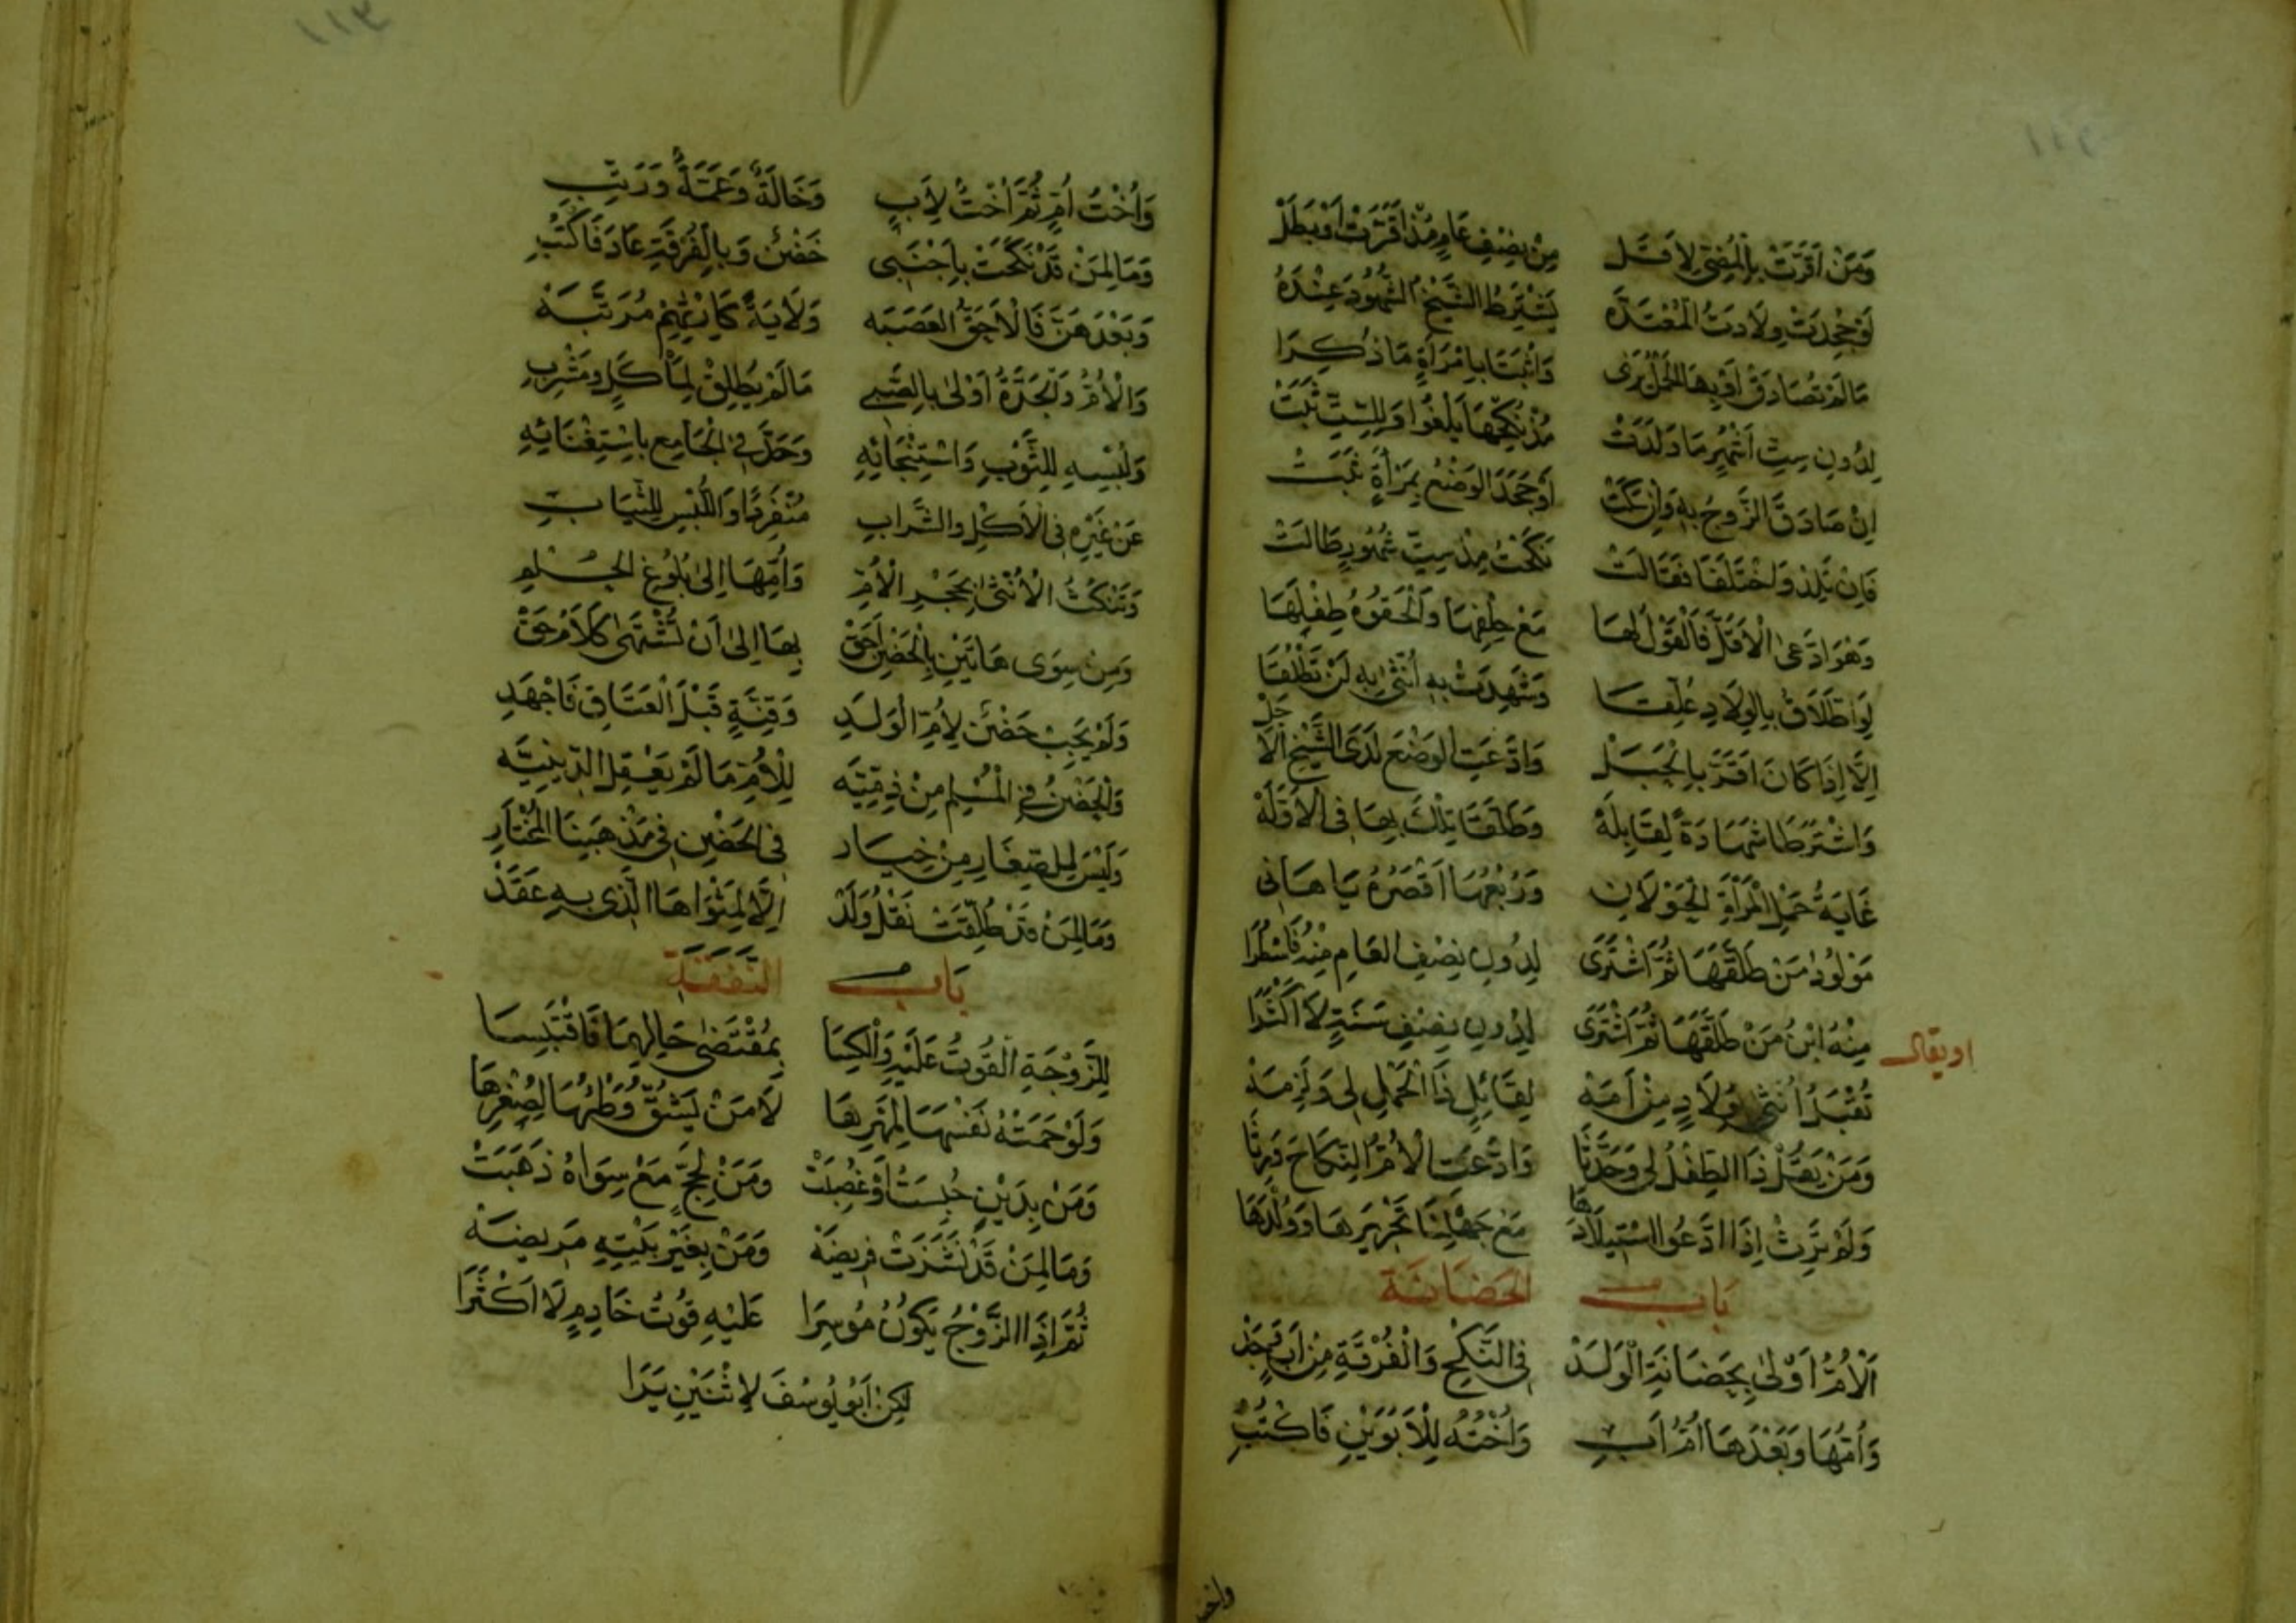 وَمَنْ اَقَرَّتْ بِالْمُضِيِّ لِاَقَلْ مِنْ نِصْفِ عَامٍ مُذْ اَقَرَّتْ اَوْ بَطَلْ
لَوْ جُحِدَتْ وِلَادَتُ الْمُعْتَدَّه يَشْتَرِطُ الشَّيْخُ الشُّهُودَ عِنْدَهُ
مَا لَمْ تُصَادَقْ اَوْ بِهَا الْحَمْلُ يُرَى وَاثْبَتَا بِامْرَأَةٍ مَا ذُكِرَا
لِدُونِ سِتِّ اَشْهُرٍ مَا وَلَدَتْ مُذْ نُكِحَتْهَا يَلْغُوا وَلِلسِّتِّ ثَبَتْ
اِنْ صَادَقَ الزَّوْجُ بِهِ وَاِنْ سَكَتْ اَوْ جَحَدَ الوَضْعُ بِمَرْأَةٍ ثَبَتْ
فَاِنْ تَلِدْ وَاخْتَلَفَا فَقَالَتْ نَكَحْتُ مِذْ سِتِّ شُهُورٍ طَالَتْ
وَهْوَ ادَّعَى الْاَقَلَّ فَالْقَوْلُ لَهَا مَعْ حِلْفِهَا وَالْحَقُوهُ طِفْلَهَا
لَوْ اِطَّلَاقٌ بِالْوِلَادِ عُلِّقَا وَشَهِدَتْ بِهِ اُنْثَى بِهِ لَنْ تَطْلُقَا
اِلَّا اِذَا كَانَ اَقَرَّ بِالْحَبَلْ وَادَّعَتِ الوَضْعَ لَدَى الشَّيْخِ الْاَجَلّ
وَاشْتَرَطَا شَهَادَةً لِقَابِلَهْ وَطَلَّقَا تِلْكَ بِهَا فِى الْاَوَّلَهْ
غَايَةُ حَمْلِ الْمَرْأَةِ الْحَوْلَانِ وَرُبْعُهَا اَقْصَرُهُ يَا هَانِى
مَوْلُودُ مَنْ طَلَّقَهَا ثُمَّ اشْتَرَى لِدُونِ نِصْفِ العَامِ مِنْهُ فَاسْطُرَا
اويقال مِنْهُ ابْنُ مَنْ طَلَّقَهَا ثُمَّ اشْتَرَى لِدُونِ نِصْفِ سَنَةٍ لَا اَكْثَرَا
تُقْبَلُ اُنْثَى فِي وِلَادٍ مِنْ اَمَهْ لِقَائِلٍ ذَا الْحَمْلِ لِى وَلَزِمَهْ
وَمَنْ يَقُلْ ذَا الطِّفْلُ لِى وَحَدَّثَا وَادَّعَتِ الْاُمُّ النِّكَاحَ وَرِثَا
وَلَمْ تَرِثْ اِذَا ادَّعُوا اسْتِيلَادَهَا مَعْ جَهْلِنَا تَحْرِيرَهَا وَوُلْدَهَا
بَاب الحَضَانَة
اَلْاُمُّ اَوْلَى بِحَضَانَةِ الْوَلَدْ فِى النَّكْحِ وَالْفُرْقَةِ مِنْ اَبٍ وَجَدْ
وَاُمُّهَا وَبَعْدَهَا اُمُّ اَبِ وَاُخْتُهُ لِلْاَبَوَيْنِ فَاكْتُبِ
وَاُخْتُ اُمٍّ ثُمَّ اُخْتٌ لِاَبٍ وَخَالَةٌ وَعَمَّةٌ وَرَتِّبِ
وَمَا لِمَنْ قَدْ نَكَحَتْ بِاَجْنَبِى حَضْنٌ وَبِالفُرْقَةِ عَادَ فَاكْتُبِ
وَبَعْدَهُنَّ فَالْاَحَقُّ العَصَبَه وَلَايَةً كَارِثِهِمْ مُرَتَّبَهْ
وَالْاُمُّ وَالْجَدَّةُ اَوْلَى بِالصَّبِى مَا لَمْ يُطِقْ لِمَأْكَلٍ وَمَشْرَبِ
وَلُبْسِهِ لِلثَّوْبِ وَاسْتِنْجَائِهِ وَحَدَّ فِى الْجَامِعِ بِاسْتِغْنَائِهِ
عَنْ غَيْرِهِ فِى الْاَكْلِ وَالشَّرَابِ مُنْفَرِدًا وَاللُّبْسِ لِلثِّيَابِ
وَتَمْكُثُ الْاُنْثَى بِحَجْرِ الْاُمِّ وَاُمِّهَا اِلَى بُلُوغِ الْحُلْمِ
وَمِنْ سِوَى هَاتَيْنِ بِالْحَضْنِ اَحَقْ بِهَا اِلَى اَنْ تُشْتَهَى كَلَامُ حَقْ
وَلَمْ يَجِبْ حَضْنٌ لِاُمِّ الْوَلَدِ وَقِنَّةٍ قَبْلَ الْعَتَاقِ فَاجْهَدِ
وَالْحَضْنُ فِى الْمُسْلِمِ مِنْ ذِمِّيَّه لِلْاُمِّ مَا لَمْ يَعْقِلِ الدِّينِيَّه
وَلَيْسَ لِلصِّغَارِ مِنْ خِيَار فِى الحَضْنِ فِى مَذْهَبِنَا الْمُخْتَارِ
وَمَا لِمَنْ قَدْ طُلِّقَتْ نَقْلُ وَلَدْ اِلَّا لِمَثْوَاهَا الَّذِى بِهِ عَقَدْ
بَاب النَّفَقَة
لِلزَّوْجَةِ القُوتُ عَلَيْهِ وَالْكِسَا بِمُقْتَضَى حَالِهِمَا فَاقْتَبِسَا
وَلَوْ حَمَتْهُ نَفْسَهَا لِمَهْرِهَا لَا مَنْ يَشُقُّ وَطْئُهَا لِصُغْرِهَا
وَمَنْ بِدَيْنٍ حُبِسَتْ اَوْ غُصِبَتْ وَمَنْ لِحَجٍّ مَعْ سِوَاهُ ذَهَبَتْ
وَمَا لِمَنْ قَدْ نَشَزَتْ فَرِيضَهْ وَمَنْ بِغَيْرِ بَيْتِهِ مَرِيضَهْ
ثُمَّ اِذَا الزَّوْجُ يَكُونُ مُوسِرَا عَلَيْهِ قُوتُ خَادِمٍ لَا اَكْثَرَا
لَكِنْ اَبُو يُوسُفَ لِاثْنَيْنِ يَرَا